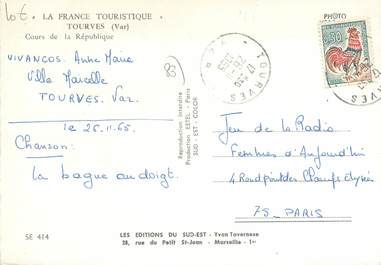 Lot
LA FRANCE TOURISTIQUE
TOURVES (Var)
Cours de la République
VIVANCOS. Anne Marie
Villa Marcelle
TOURVES. Var.
83
le 25.11.65
Chanson:
La bague au doigt.
Reproduction interdite
Production ESTEL - Paris
SUD - EST - COLOR
PHOTO
0,30
TOURVES
VAR
Jeu de la Radio
Femmes d'Aujourd'hui
4 Rond point des Champs Elysées
75 - PARIS
SE 414
LES EDITIONS DU SUD-EST - Yvan Tavernese
28, rue du Petit St-Jean - Marseille - 1er